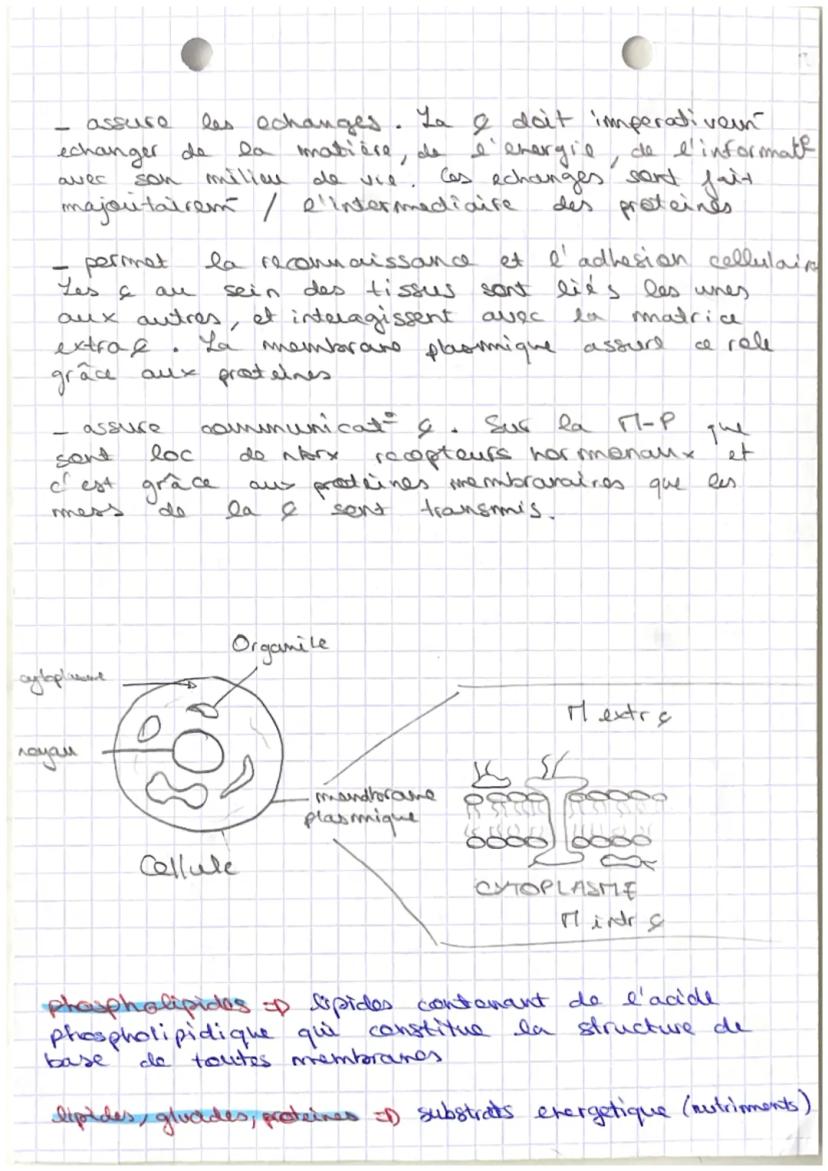 - assure les echanges. La ȼ doit imperativemt
echanger de la matière, de l'énergie, de l'informat°
avec son milieu de vie. Ces echanges sont fait
majoritairemt / l'intermediaire des proteines
- permet la reconnaissance et l'adhesion cellulaire
Les ȼ au sein des tissus sont liés les unes
aux autres, et interagissent avec la matrice
extra ȼ. La membrane plasmique assure ce role
grâce aux proteines
- assure communicat° ȼ. Sur la M-P que
sont loc de nbrx recepteurs hormonaux et
c'est grâce aux protéines membranaires que les
mess de la ȼ sont transmis.
Organite
cytoplasme
M extr ȼ
noyau
membrane
plasmique
Cellule
CYTOPLASME
M intr ȼ
phospholipides => lipides contenant de l'acide
phospholipidique qui constitue la structure de
base de toutes membranes
lipides, glucides, proteines => substrats energetique (nutriments)